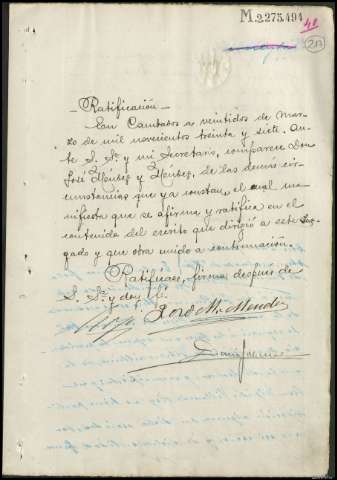 M.2.275.494
212
Ratificación
En Cambados a veintidos de mar-
zo de mil novecientos treinta y siete. an-
te S. Sª y mi Secretario, comparece Don
José Mendez y Mendez, de las demás cir-
cunstancias que ya constan, el cual ma-
nifiesta que se afirma y ratifica en el
contenido del escrito que dirigió a este Juz-
gado y que obra unido a continuación.
Ratificase, firma después de
S. Sª y doy fé.
José Mz Mendez